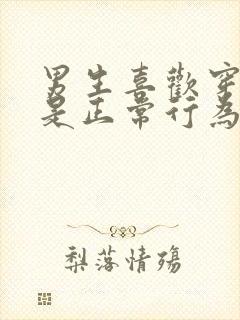 男生喜歡穿
是正常行為
梨落情殤